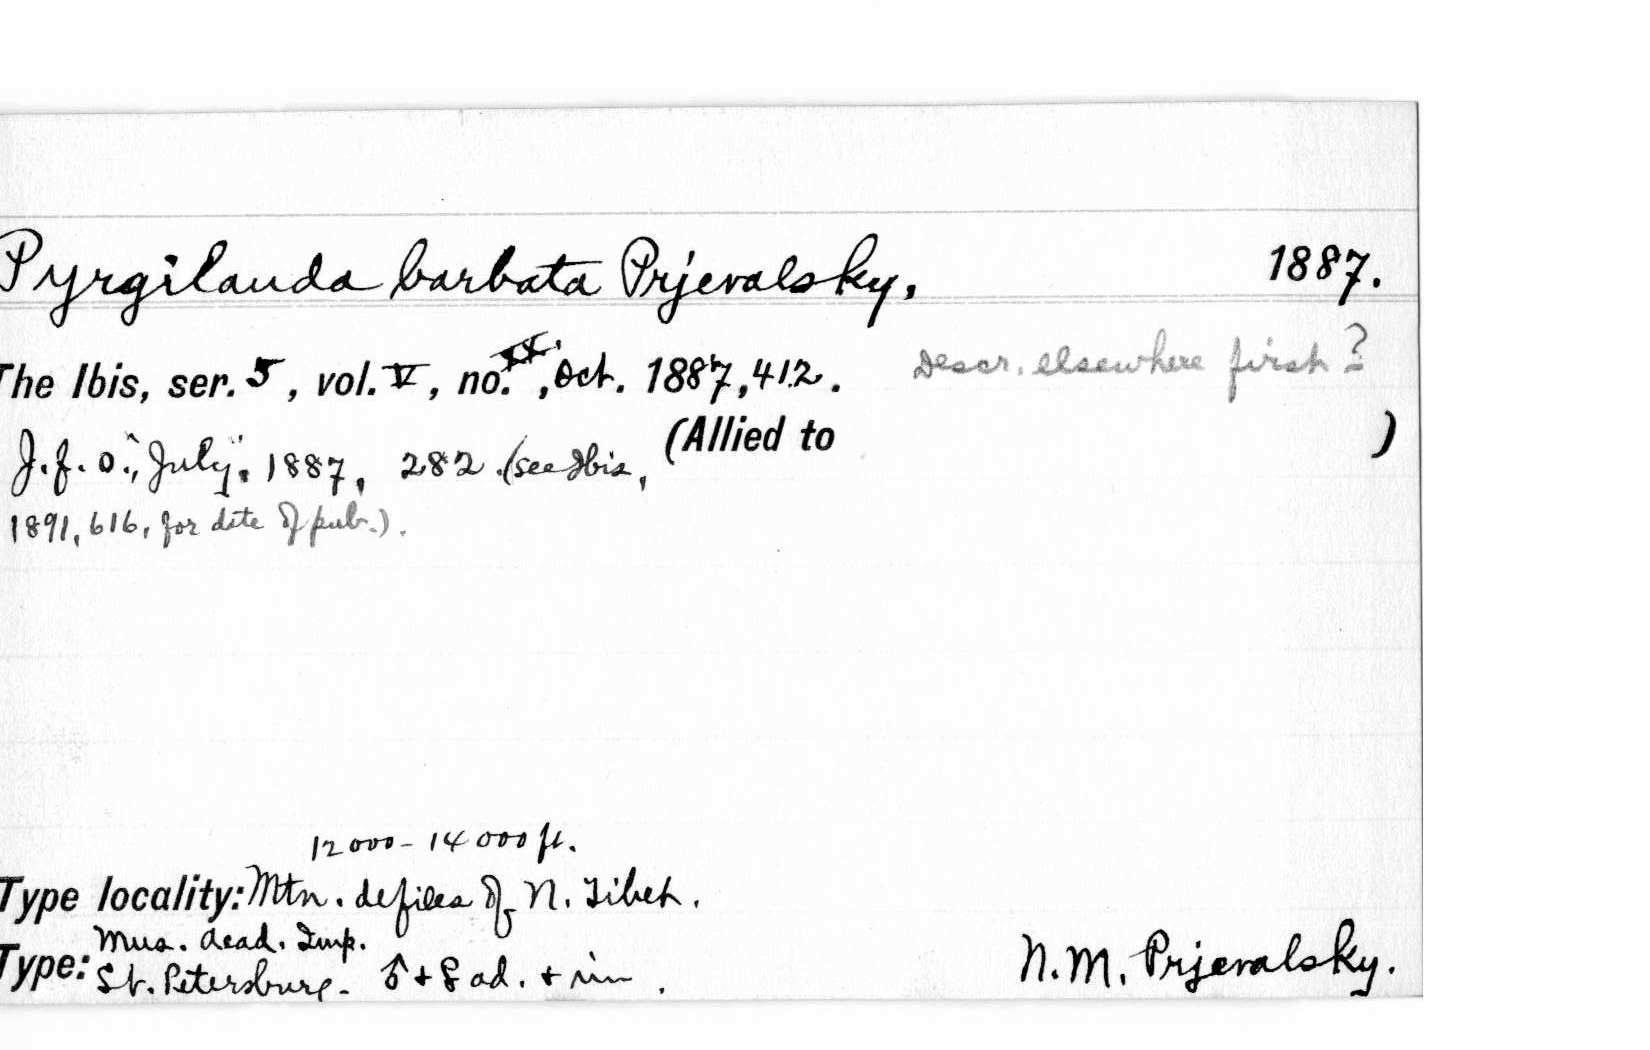 Pyrgilauda barbata Prjevalsky, 1887.
The Ibis, ser. 5, vol. V, no. XX, Oct. 1887, 412. Descr. elsewhere first?
(Allied to )
J. f. O., July, 1887, 282. (see Ibis,
1891, 616, for date of pub.).
12000-14000 ft.
Type locality: Mtn. defiles of N. Tibet.
Mus. Acad. Imp.
Type: St. Petersburg. ♂ + ♀ ad. + im.
N. M. Prjevalsky.